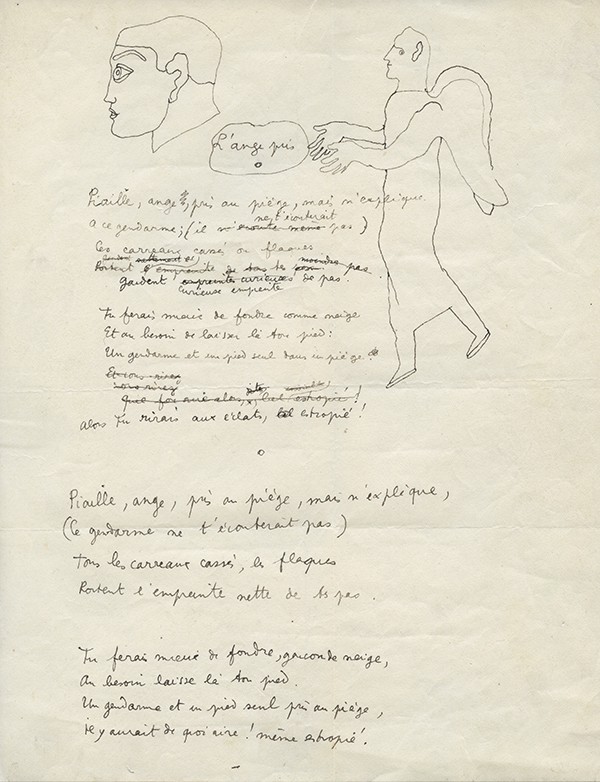 L'ange pris
Piaille, ange, pris au piège, mais n'explique
a ce gendarme; (il n'écoute même ne t'écouterait pas)
Ces carreaux cassés ou flaques
Portent l'empreinte de tes moindre pas.
gardent, empreintes curieuses de pas.
curieuse empreinte
Tu ferais mieux de fondre comme neige
Et au besoin de laisser là ton pied:
Un gendarme et un pied seul dans un piège!
Et vous rirez
vous rirez
estropié!
alors tu rirais aux éclats, bel estropié!
Piaille, ange, pris au piège, mais n'explique,
(Ce gendarme ne t'écouterait pas)
Tous les carreaux cassés, les flaques
Portent l'empreinte nette de tes pas.
Tu ferais mieux de fondre, garçon de neige,
Au besoin laisse là ton pied.
Un gendarme et un pied seul pris au piège,
il y aurait de quoi rire! même estropié.